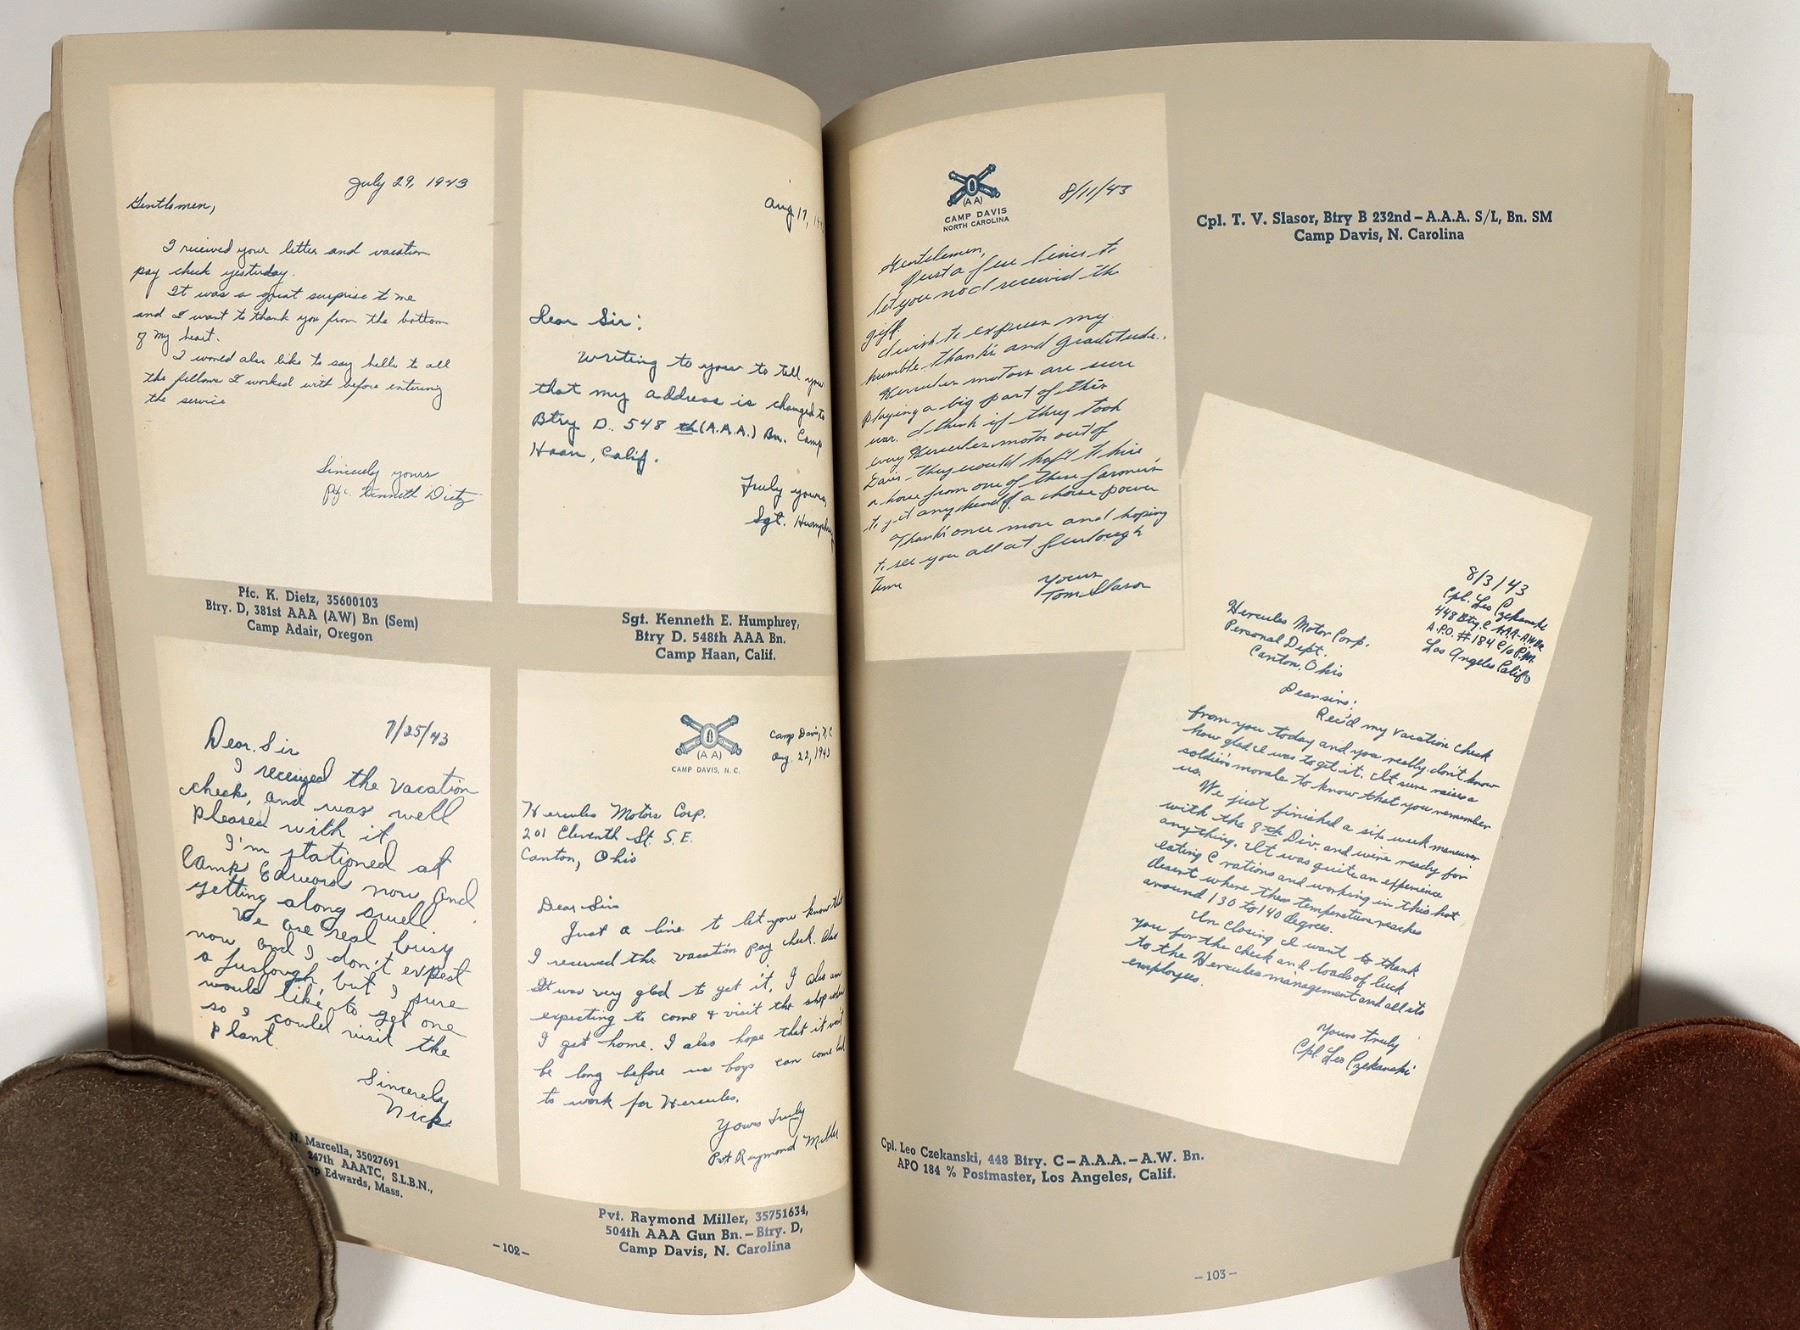 July 29, 1943
Gentlemen,
I received your letter and vacation
pay check yesterday.
It was a great surprise to me
and I want to thank you from the bottom
of my heart.
I would also like to say hello to all
the fellows I worked with before entering
the service
Sincerely yours
Pfc. Kenneth Dietz
Pfc. K. Dietz, 35600103
Btry. D, 381st AAA (AW) Bn (Sem)
Camp Adair, Oregon
Aug 17, 194
Dear Sir:
Writing to your to tell you
that my address is changed to
Btry D. 548 th (A.A.A.) Bn. Camp
Haan, Calif.
Truly yours,
Sgt. Humphrey
Sgt. Kenneth E. Humphrey,
Btry D. 548th AAA Bn.
Camp Haan, Calif.
7/25/43
Dear Sir
I received the vacation
check, and was well
pleased with it.
I'm stationed at
Camp Edwards now and
getting along swell.
We are real busy
now and I don't expect
a furlough, but I sure
would like to get one
so I could visit the
plant.
Sincerely
Nick
N. Marcella, 35027691
247th AAATC, S.L.B.N.,
p Edwards, Mass.
(AA)
CAMP DAVIS, N. C.
Camp Davis, N.C.
Aug. 22, 1943
Hercules Motors Corp.
201 Eleventh St. S. E.
Canton, Ohio
Dear Sirs
Just a line to let you know that
I received the vacation pay check. And
It was very glad to get it. I also am
expecting to come & visit the shop when
I get home. I also hope that it wont
be long before us boys can come back
to work for Hercules.
Yours Truly
Pvt Raymond Miller
Pvt. Raymond Miller, 35751634,
504th AAA Gun Bn. – Btry. D,
Camp Davis, N. Carolina
–102–
(AA)
CAMP DAVIS
NORTH CAROLINA
8/11/43
Gentelemen,
Just a few lines to
let you no I received the
gift.
I wish to express my
humble thanks and graditude.
Hercules motors are sure
playing a big part of this
war. I think if they took
every Hercules motor out of
Davis they would haft to hire
a horse from one of these farmers
to get any kind of a horse power
Thanks once more and hoping
to see you all at furlough
time
Yours
Tom Slasor
Cpl. T. V. Slasor, Btry B 232nd – A.A.A. S/L, Bn. SM
Camp Davis, N. Carolina
8/3/43
Cpl. Leo Czekanski
448 Bty. C AAA-AW Bn.
A.P.O. #184 C/o P.M.
Los Angeles Calif
Hercules Motor Corp.
Personal Dept.
Canton, Ohio
Dear sirs:
Rec'd my vacation check
from you today and you really don't know
how glad I was to get it. It sure raises a
soldiers morale to know that you remember
us.
We just finished a six week maneuver
with the 8th Div. and we're ready for
anything. It was quite an experience
eating C rations and working in this hot
desert where these temperature reaches
around 130 to 140 degrees.
In closing I want to thank
you for the check and loads of luck
to the Hercules management and all its
employees.
Yours truly
Cpl. Leo Czekanski
Cpl. Leo Czekanski, 448 Btry. C – A.A.A. – A.W. Bn.
APO 184 % Postmaster, Los Angeles, Calif.
–103–